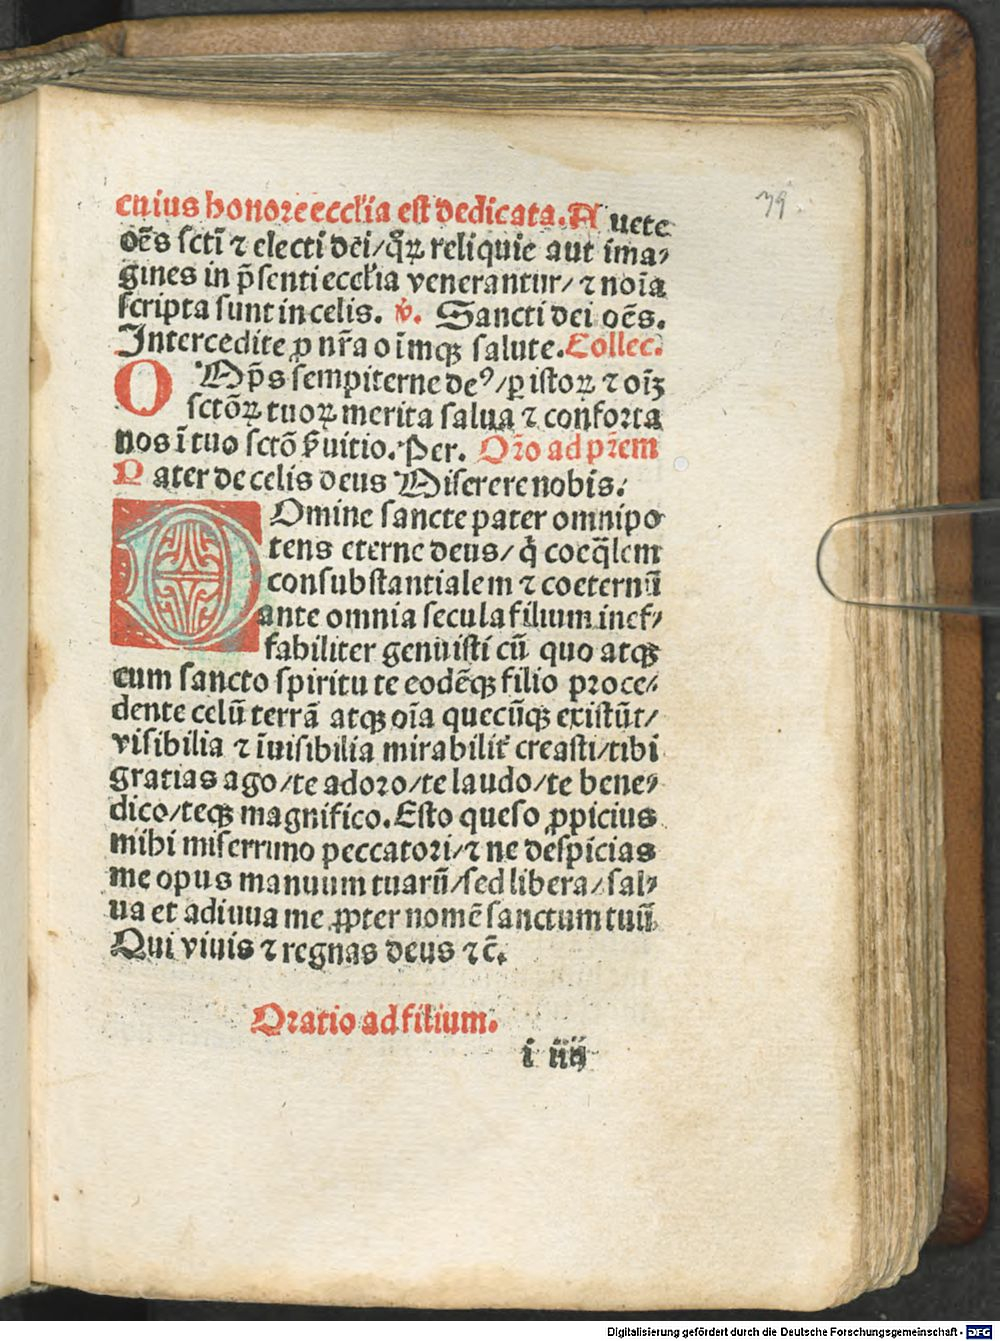 cuius honore eccl'ia est dedicata. A uete
oēs sctī ⁊ electi dei/ qͥꝝ reliquie aut ima⸗
gines in p̄senti eccl'ia venerantur/ ⁊ noīa
scripta sunt in celis. v̊. Sancti dei oēs.
Intercedite ꝓ nr̄a oīmqꝫ salute. Collec.
O Mp̄s sempiterne deꝰ/ ꝑ istoꝝ ⁊ oīꝫ
sctōꝝ tuoꝝ merita salua ⁊ conforta
nos ī tuo sctō ẜuitio. Per. Or̄o ad pr̄em
P ater de celis deus Miserere nobis.
D Omine sancte pater omnipo
tens eterne deus/ q̇ coeq̄lem
consubstantialem ⁊ coeternū
ante omnia secula filium inef⸗
fabiliter genuisti cū quo atqꝫ
cum sancto spiritu te eodēqꝫ filio proce⸗
dente celū terrā atqꝫ oīa quecūqꝫ existūt/
visibilia ⁊ īuisibilia mirabilit᷑ creasti/ tibi
gratias ago/ te adoro/ te laudo/ te bene⸗
dico/ teqꝫ magnifico. Esto queso ꝓpicius
mihi miserrimo peccatori/ ⁊ ne despicias
me opus manuum tuarū/ sed libera/ sal⸗
ua et adiuua me ꝓpter nomē sanctum tuū
Qui viuis ⁊ regnas deus ⁊c̄.
Oratio ad filium.
i iiij
39.
Digitalisierung gefördert durch die Deutsche Forschungsgemeinschaft - DFG